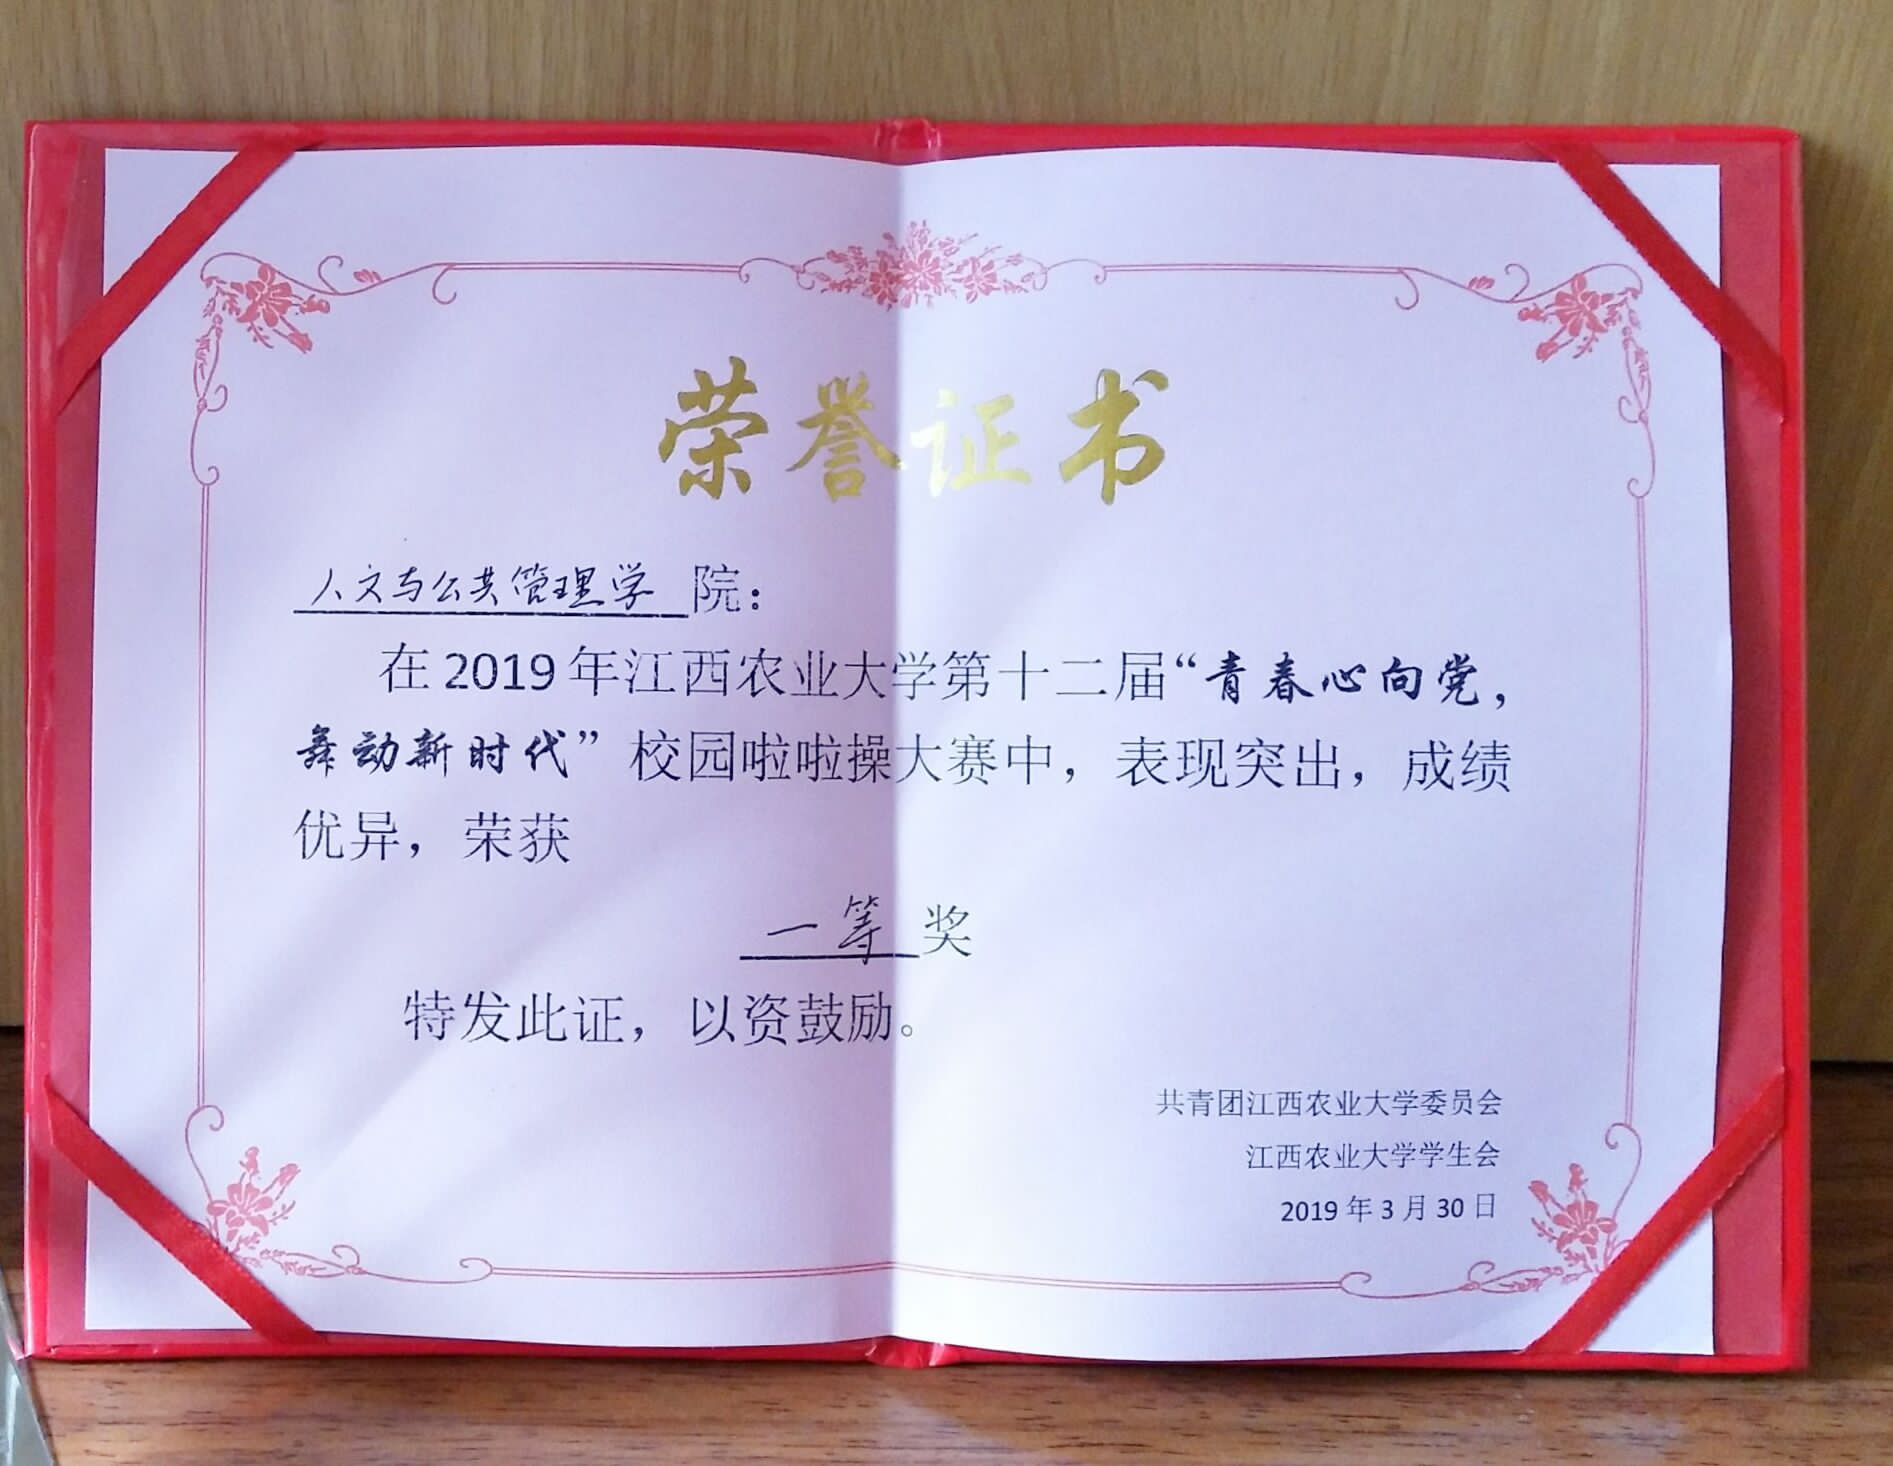 荣誉证书
人文与公共管理学院：
在2019年江西农业大学第十二届“青春心向党，
舞动新时代”校园啦啦操大赛中，表现突出，成绩
优异，荣获
一等奖
特发此证，以资鼓励。
共青团江西农业大学委员会
江西农业大学学生会
2019年3月30日